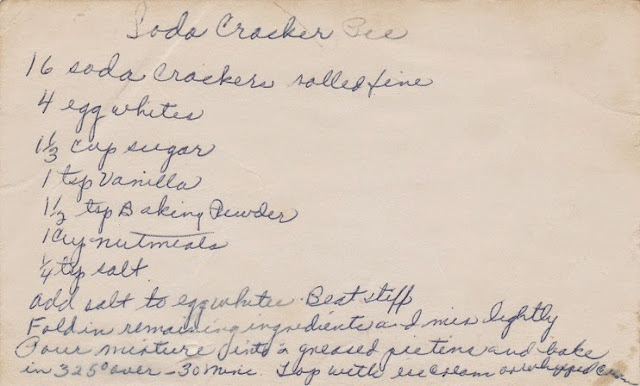 Soda Cracker Pie
16 soda crackers rolled fine
4 egg whites
1 1/3 cup sugar
1 tsp Vanilla
1 1/2 tsp Baking Powder
1 cup nutmeats
1/4 tsp salt
add salt to egg whites. Beat stiff
Fold in remaining ingredients and mix lightly
Pour mixture into a greased pie tins and bake
in 325° oven - 30 min. Top with ice cream or whipped